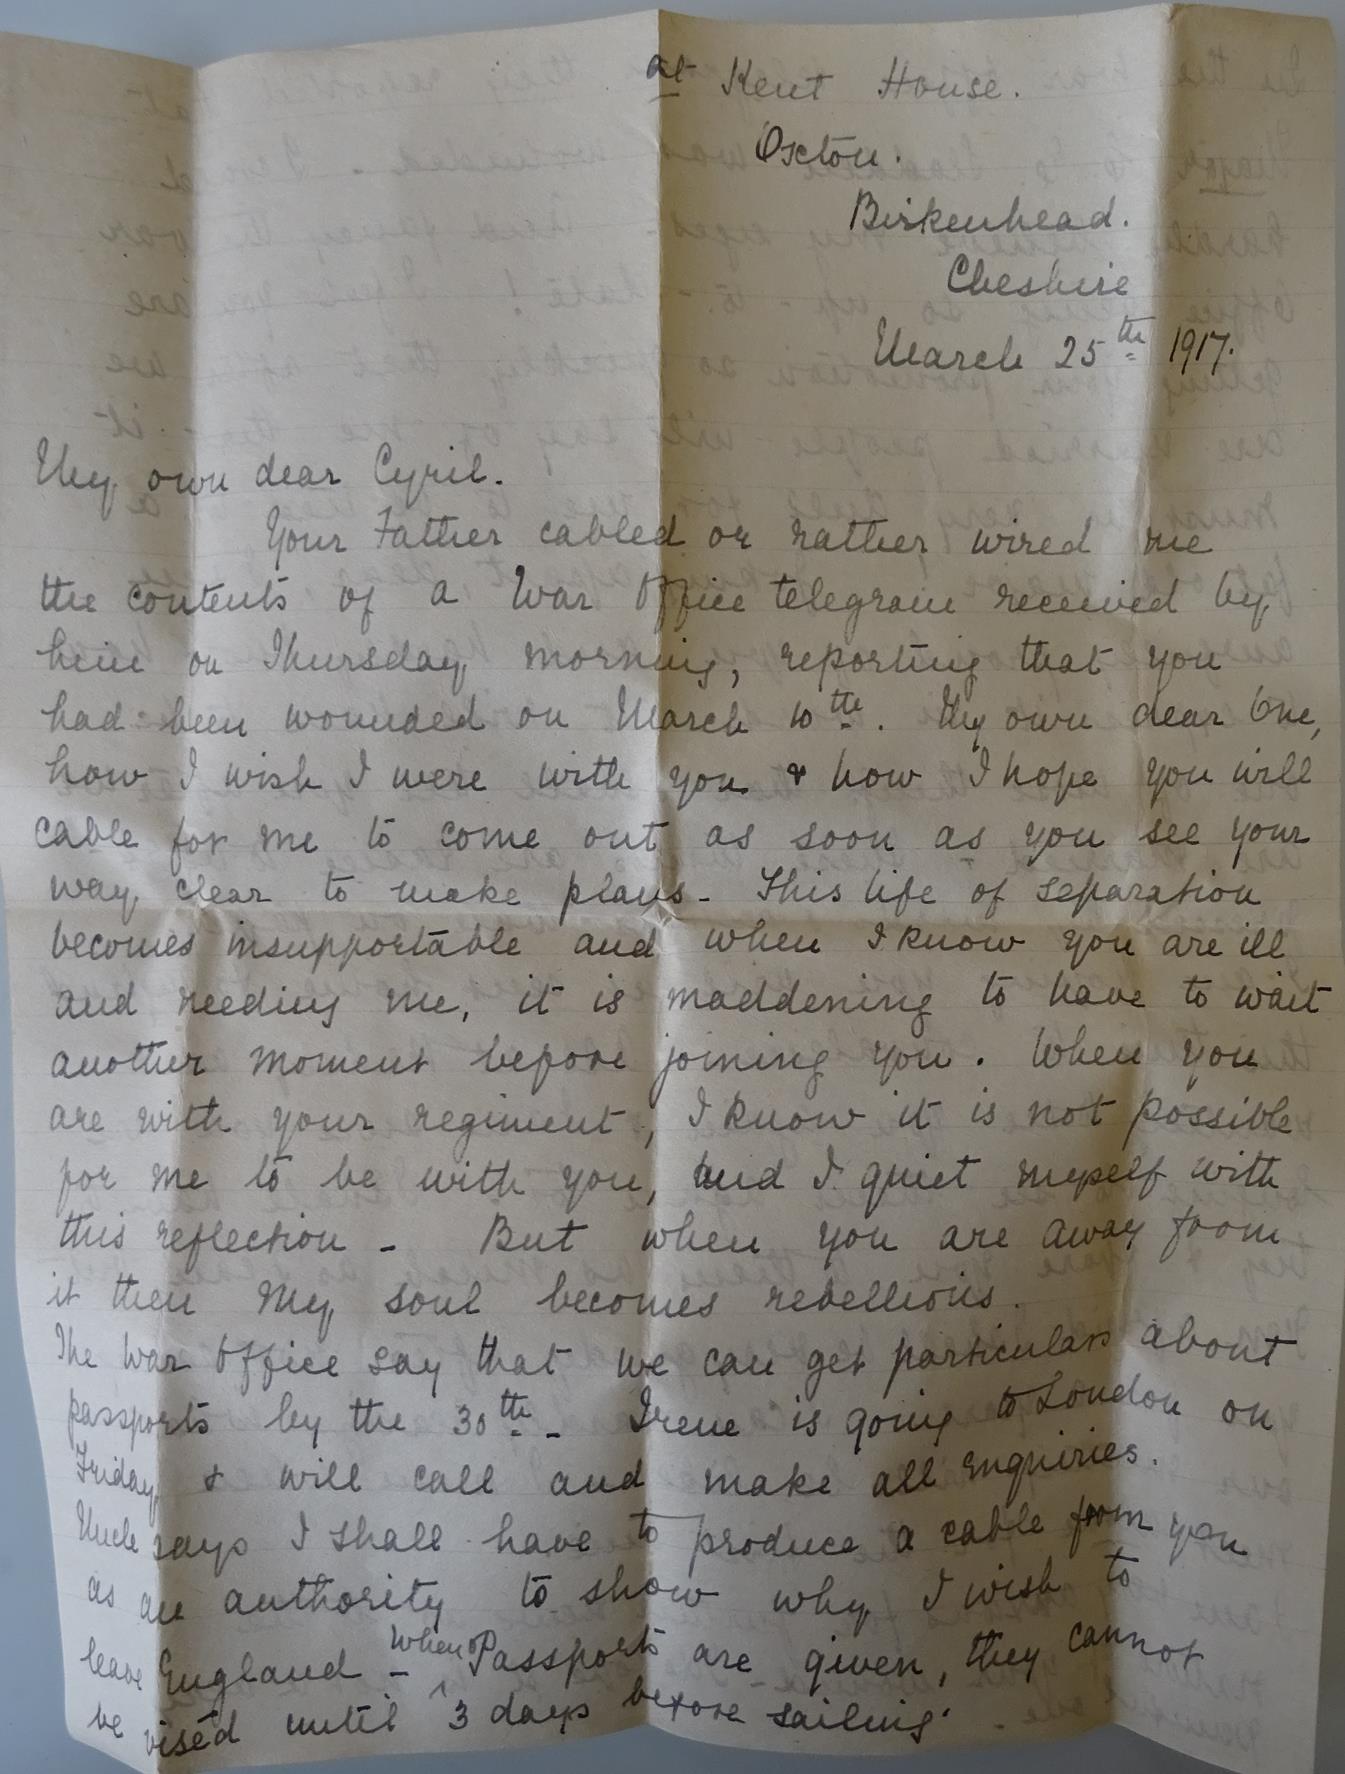 at Kent House.
Oxton.
Birkenhead.
Cheshire
March 25th 1917.
My own dear Cyril.
Your Father cabled or rather wired me
the contents of a War Office telegram received by
him on Thursday morning, reporting that you
had been wounded on March 10th. My own dear One,
how I wish I were with you & how I hope you will
cable for me to come out as soon as you see your
way clear to make plans - This life of separation
becomes insupportable and when I know you are ill
and needing me, it is maddening to have to wait
another moment before joining you. When you
are with your regiment, I know it is not possible
for me to be with you, and I quiet myself with
this reflection - But when you are away from
it then my soul becomes rebellious.
The War Office say that we can get particulars about
passports by the 30th - Irene is going to London on
Friday & will call and make all enquiries.
Uncle says I shall have to produce a cable from you
as an authority to show why I wish to
leave England - When Passports are given, they cannot
be viséd until 3 days before sailing.